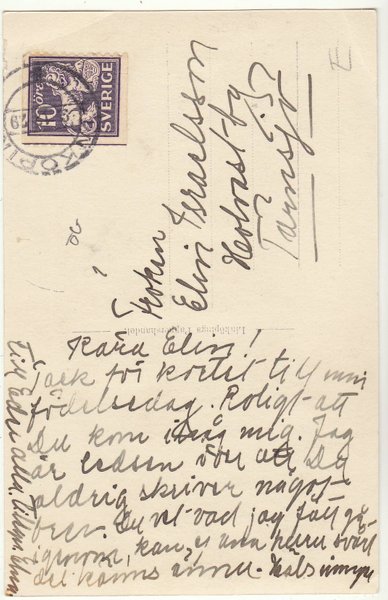 10 öre
SVERIGE
Fröken
Elin Israelsson
Holvast by
Tärnsjö
Linköpings Pappershandel
Kära Elin!
Tack för kortet till min
födelsedag. Roligt att
Du kom ihåg mig. Jag
är ledsen över att Du
aldrig skriver något
brev. Du vet vad jag fått gå
igenom, kan, ej ana hur svårt
det känns ännu. Hälsa
Till Eder alla.